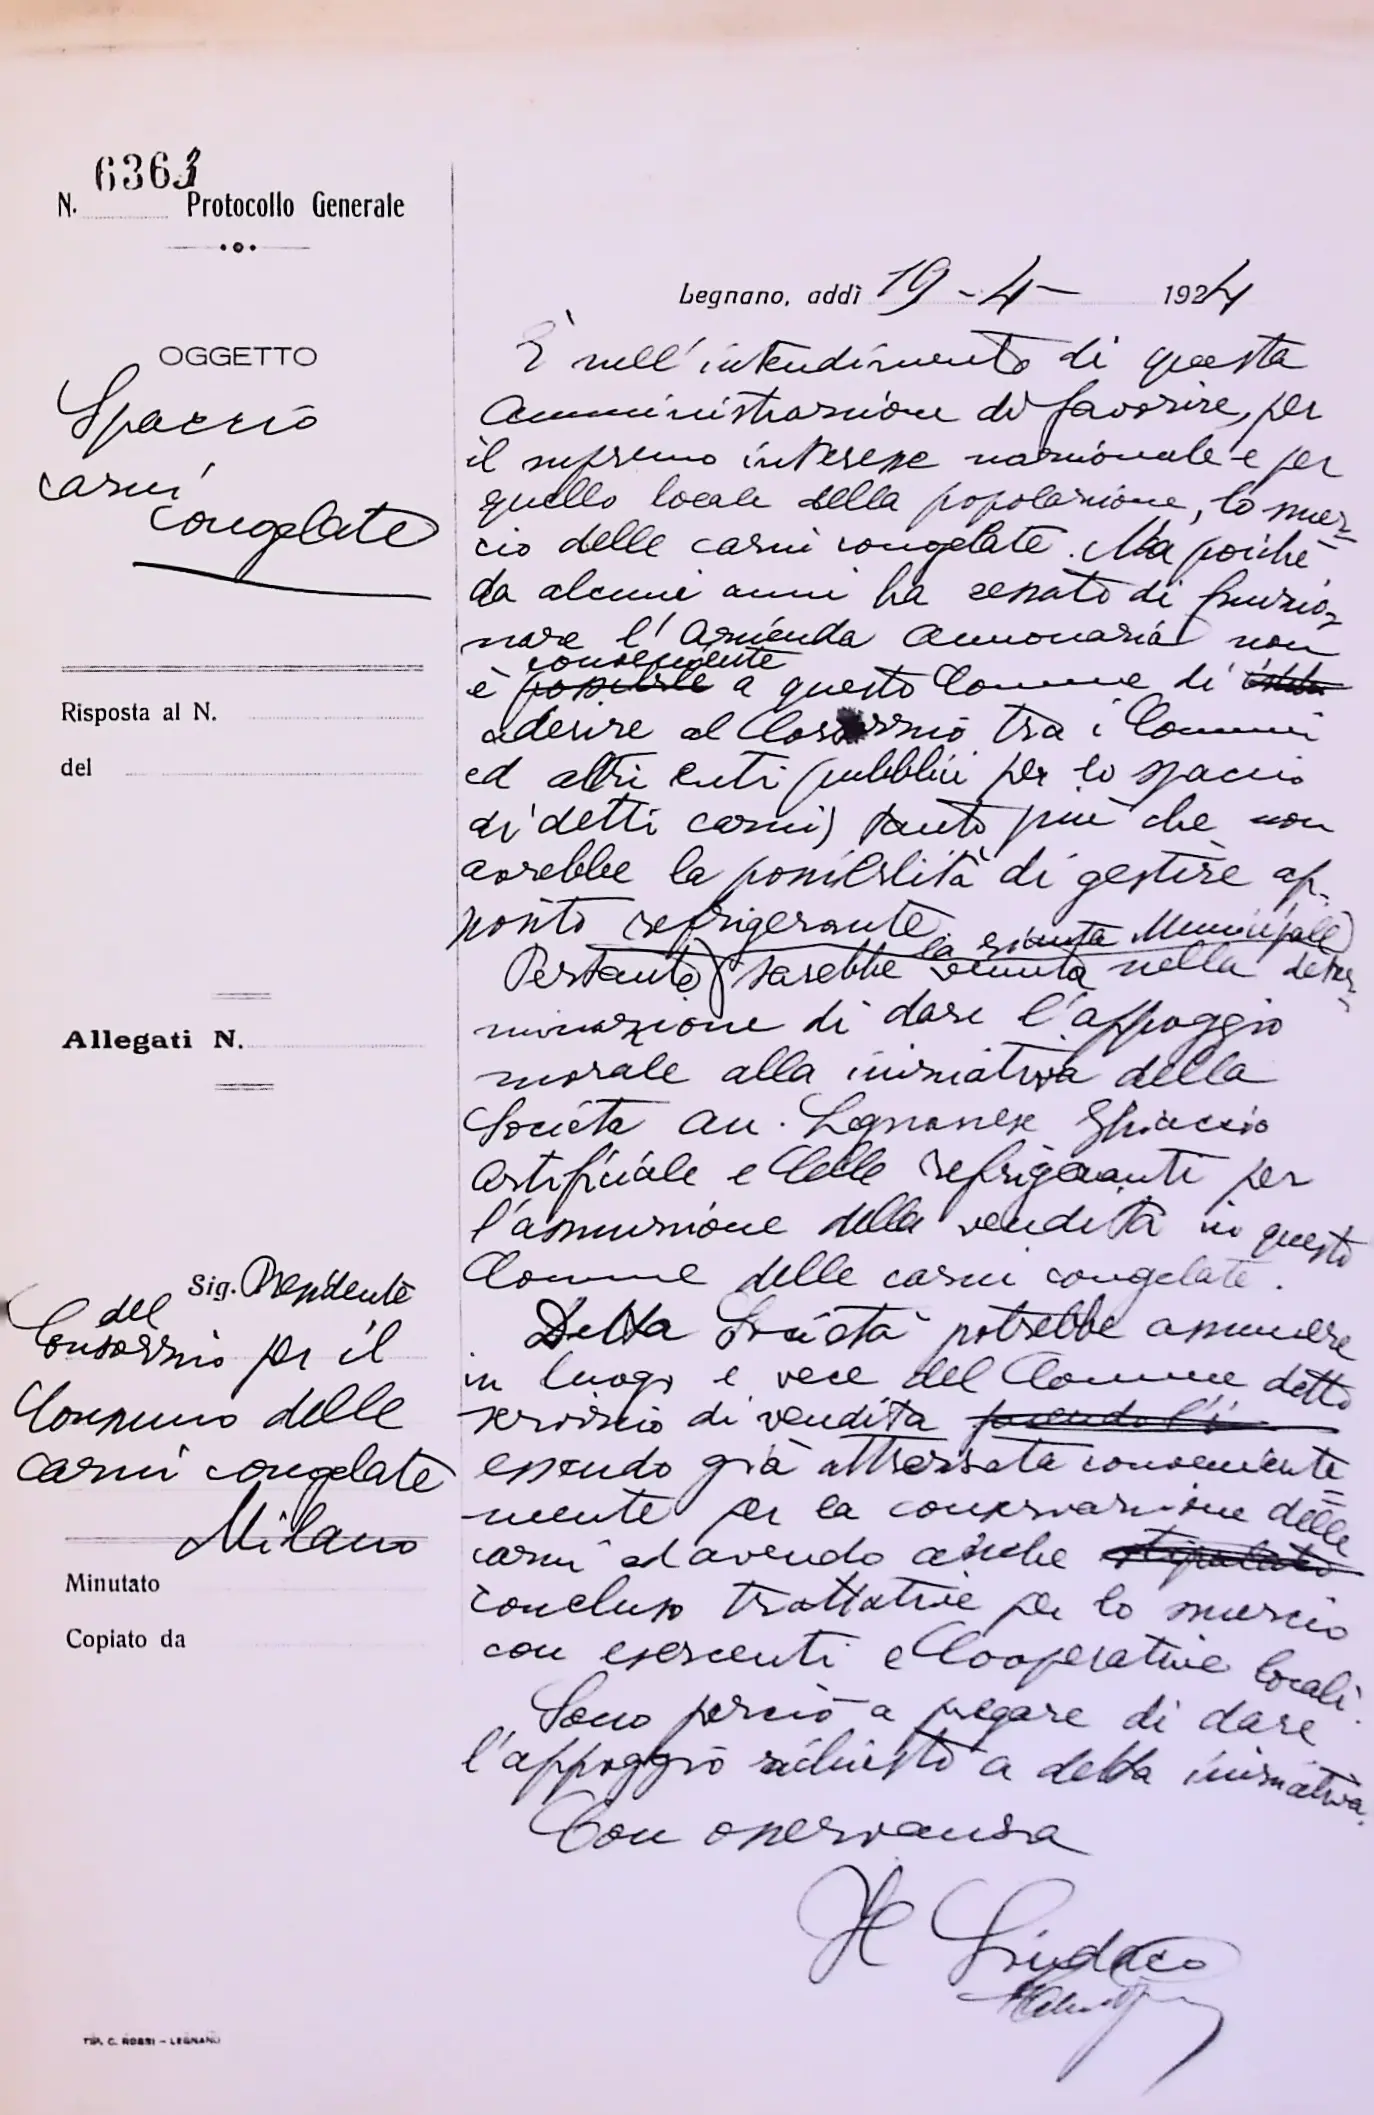 N. 6363 Protocollo Generale
OGGETTO
Spaccio
carni
congelate
Risposta al N.
del
Allegati N.
Sig. Presidente
del
Consorzio per il
Consumo delle
carni congelate
Milano
Minutato
Copiato da
TIP. C. ROSSI - LEGNANO
Legnano, addì 19-4- 1924
È nell'intendimento di questa
Amministrazione di favorire, per
il supremo interesse nazionale e per
quello locale della popolazione, lo smer=
cio delle carni congelate. Ma poichè
da alcuni anni ha cessato di funzio=
nare l'Azienda Annonaria non
conveniente
è possibile a questo Comune di
aderire al Consorzio tra i Comuni
ed altri enti pubblici per lo spaccio
di detti carni) tanto più che non
avrebbe la possibilità di gestire ap-
posito refrigerante.
la giunta Municipale
Pertanto sarebbe venuta nella deter=
minazione di dare l'appoggio
morale alla iniziativa della
Società An. Legnanese Ghiaccio
Artificiale e Celle refrigeranti per
l'assunzione della vendita in questo
Comune delle carni congelate.
Detta Società potrebbe assumere
in luogo e vece del Comune detto
servizio di vendita facendo l'i
essendo già attrezzata conveniente=
mente per la conservazione delle
carni ed avendo anche stipulato
concluso trattative per lo smercio
con esercenti e Cooperative locali.
Sono perciò a pregare di dare
l'appoggio richiesto a detta iniziativa.
Con osservanza
Il Sindaco